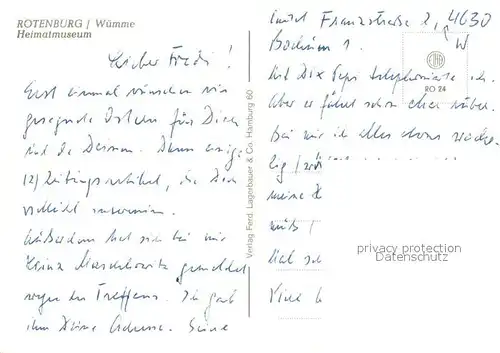 ROTENBURG / Wümme
Heimatmuseum
Lieber Fredi!
Erst einmal wünschen wir
gesegnete Ostern für Dich
und die Deinen. Dann einige
(2) Zeitungsartikel, die Dich
vielleicht interessieren.
Außerdem hat sich bei mir
Heinz gemeldet
wegen des Treffens. Ich gab
ihm Deine Adresse. Seine
Verlag Ferd. Lagerbauer & Co. Hamburg 60
lautet Franzstraße 2, 4630
Bochum 1.
Mit Dix Peps telephonierte ich.
Aber er fährt schon eher rüber.
Bei mir ist alles etwas
RO 24
meine
muß
Mal
Viele
privacy protection
Datenschutz